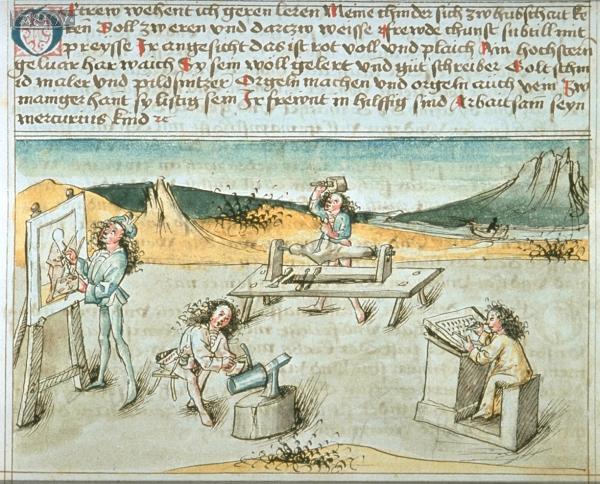 trew wehent ich geren leren Meine chinder sich zw hubschait ke
ren Voll zw eren vnd darczw weisse frewde chunst subtill mit
preysse Ir angesicht das ist rot voll vnd plaich Am hochstern
geluar har waich Sy sein woll gelert vnd gut schreiber Golt schm
id maler vnd pildsnitzer Orgeln machen vnd orgeln auch vein Zw
maniger hant sy listig sein Ir frewnt in hilffig sind Arbaitsam seyn
mercurius kind ꝛc